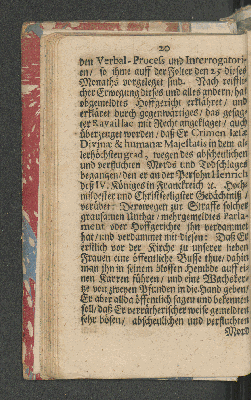 20
den Verbal-Process und Interrogatorij-
en/ so ihme auff der Folter den 25 dieses
Monaths vorgeleget sind. Nach reiffli-
cher Erwegung dieses und alles andern/ hat
obgemeldtes Hoffgericht erkläret/ und
erkläret durch gegenwärtiges/ daß gesag-
ter Ravaillac mit Recht angeklaget/ auch
überzeuget worden/ daß Er Crimen læsæ
Divinæ & humanæ Majestatis in dem al-
lerhöchsten grad/ wegen des abscheulichen
und verfluchten Mords und Todschlages
begangen/ den er an der Persohn Henrich
des IV. Königes in Franckreich ꝛc. Hoch-
nißlöster und Christseligster Gedächtniß/
verübet. Derowegen zur Straffe solcher
grausamen Unthat/ mehrgemeldtes Parla-
ment oder Hoffgerichte ihn verdammet
hat/ und verdammet mit diesen: Daß Er
erstlich vor der Kirche zu unserer lieben
Frauen eine öffentliche Busse thue/ dahin
man ihn in seinem blossen Hembde auff ei-
nen Karren führen/ und eine Wachsker-
ze von zweyen Pfunden in die Hand geben/
Er aber allda öffentlich sagen und bekennen
soll/ daß Er verrätherischer weise gemeldten
sehr bösen/ abscheulichen und verfluchten
Mord